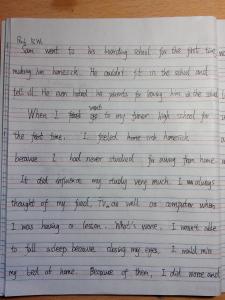 Sam went to his boarding school for the first time
making him homesick. He couldn't fit in the school and
fell ill. He even hated his parents for leaving him at the school
When I first went to my junior high school for
the first time. I feeled home-sick homesick
because I had never studied far away from home
It did influence my study very much. I was always
thought of my food, TV as well as computer when
I was having a lesson. What's worse, I wasn't able
to fall asleep because closing my eyes, I would miss
my bed at home. Because of them, I did worse and